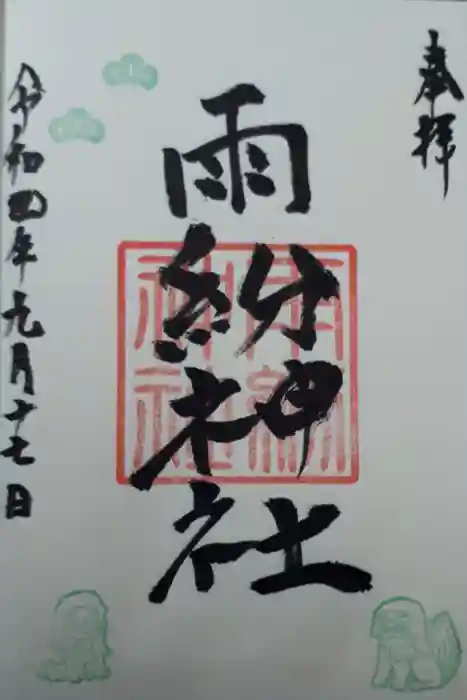 奉拝
雨紛神社
雨紛
神社
令和四年九月十七日